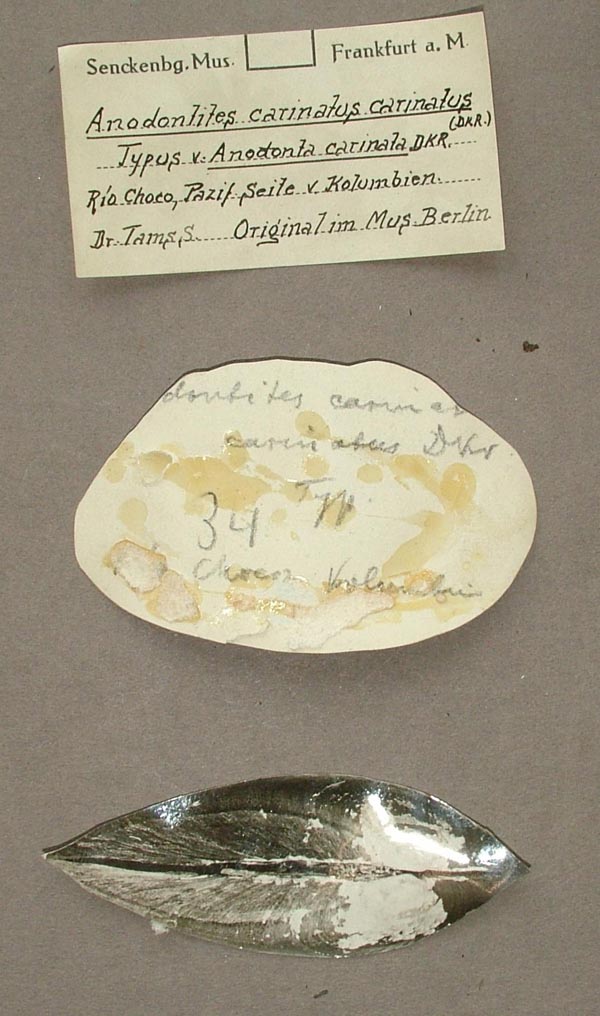 Senckenbg. Mus. Frankfurt a. M.
Anodontites carinatus carinatus
(DKR.)
Typus v. Anodonta carinata DKR.
Río Choco, Pazif. Seite v. Kolumbien.
Dr. Tams, S. Original im Mus. Berlin
dontites carinat
carinatus Dkr
Typ.
34
Choco Kolumbien